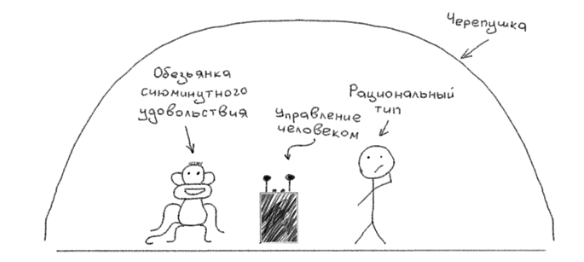 Черепушка
Обезьянка
сиюминутного
удовольствия
Управление
человеком
Рациональный
тип